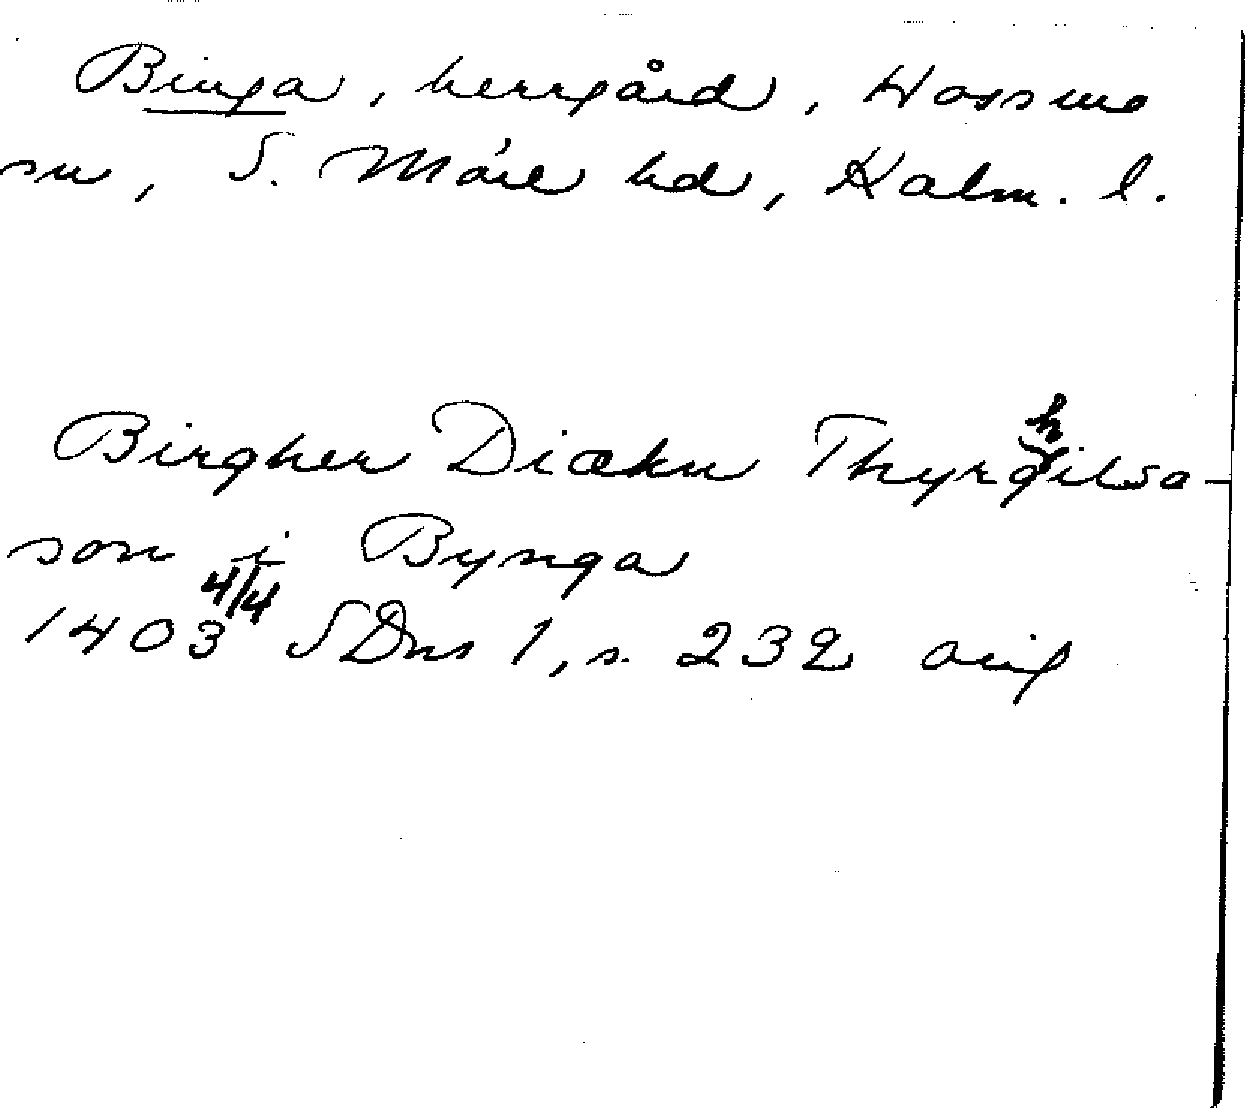 Binga, herrgård, Hossmo
sn, S. Möre hd, Kalm. l.
Birgher Diækn Thyrghilsa-
son j Bynga
1403 4/4 SDns 1, s. 232 orig